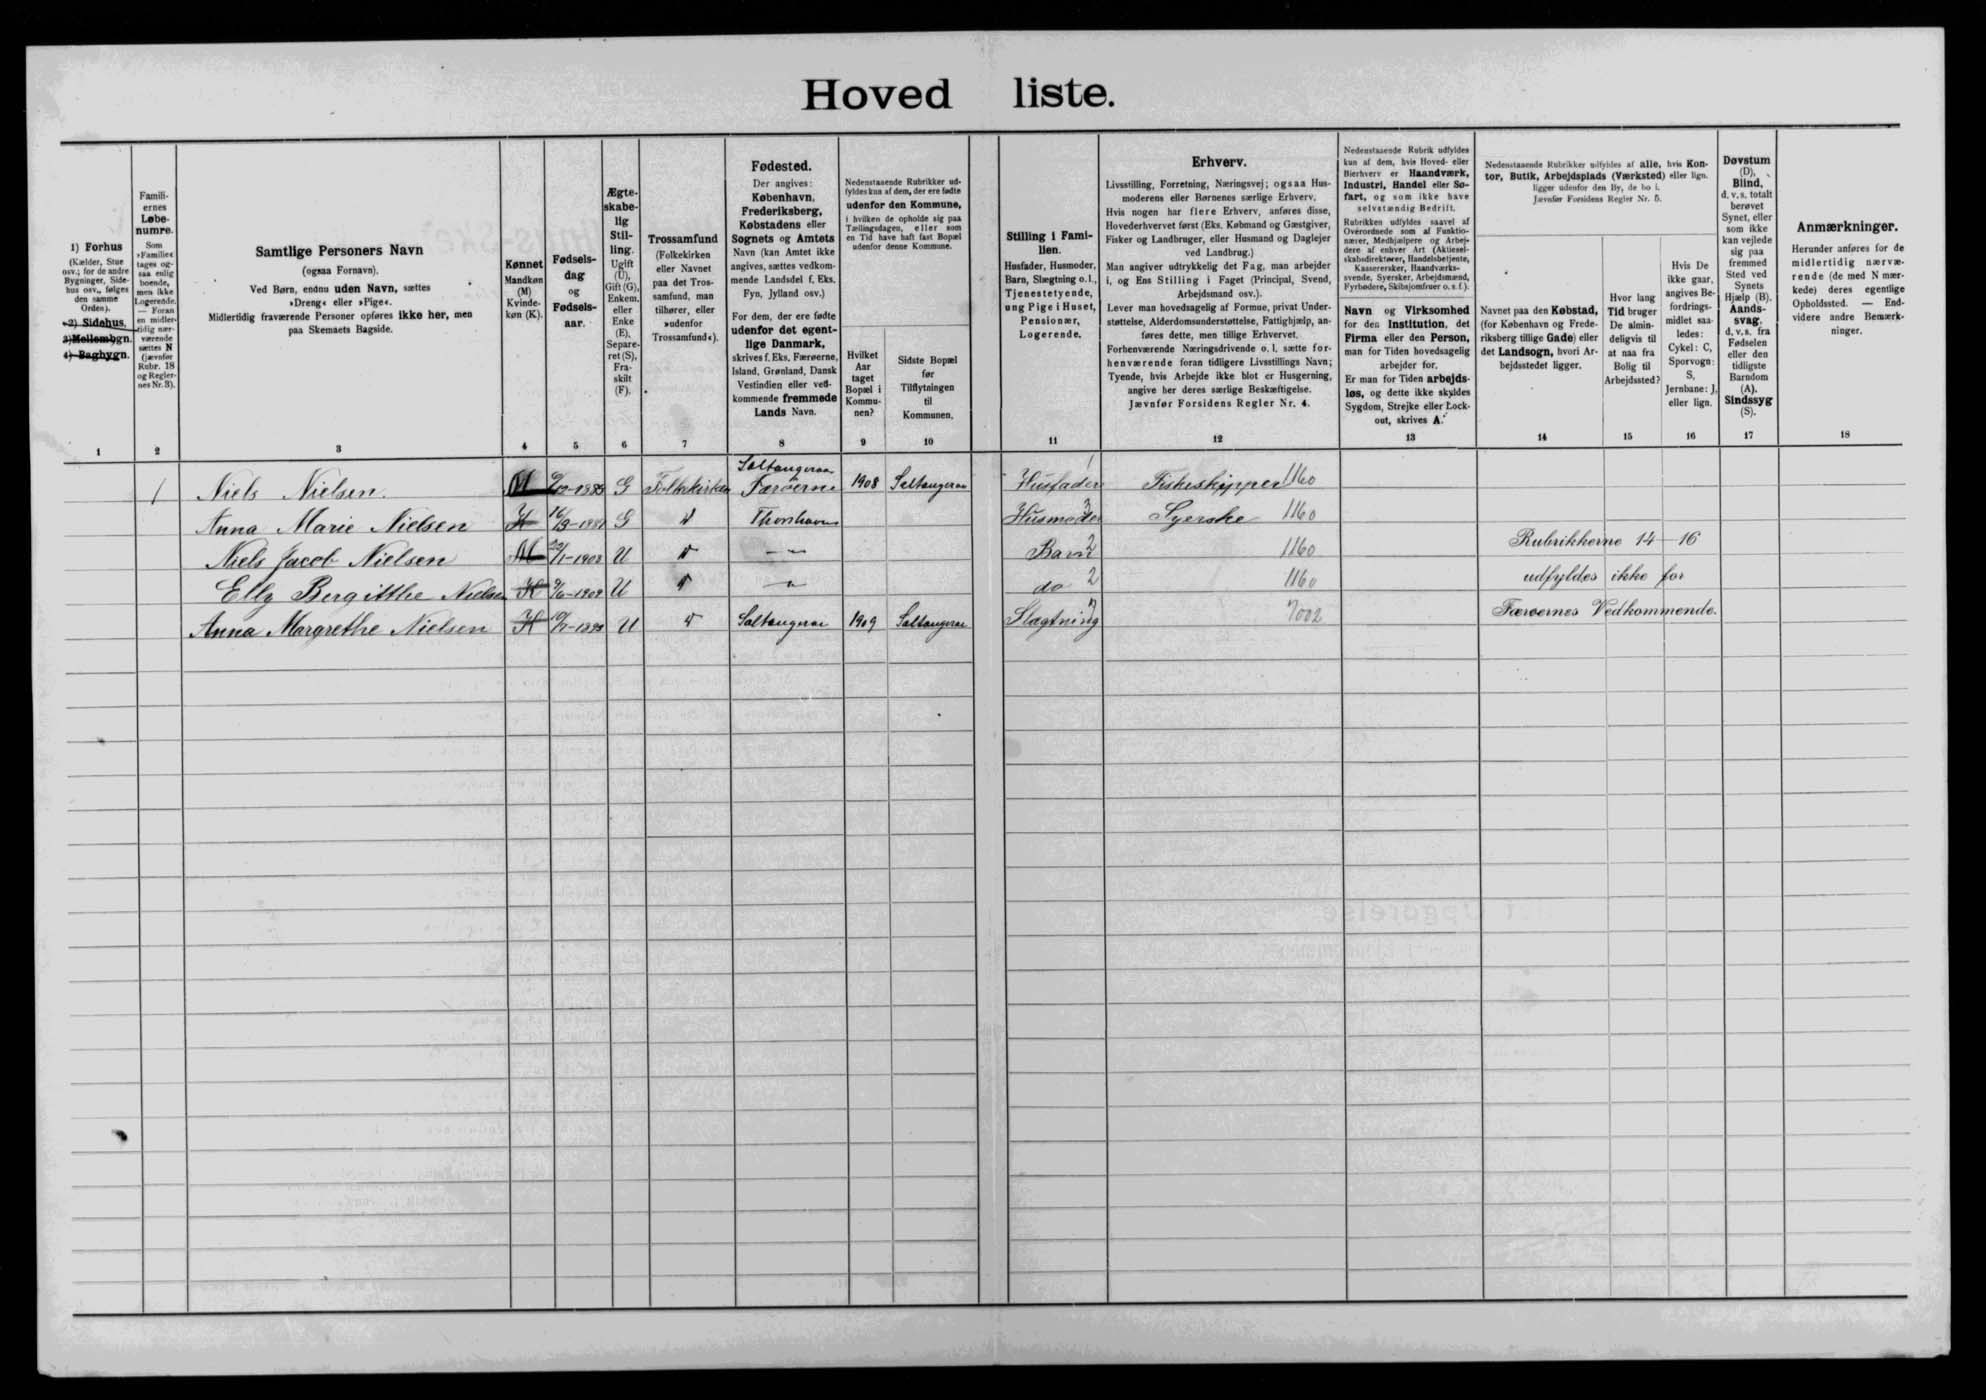 Hovedliste.
1) Forhus
(Kælder, Stue
osv.; for de andre
Bygninger, Side-
hus osv., følges
den samme
Orden).
2) Sidehus.
3) Mellembgn.
4) Bagbygn.
1
Famili-
ernes
Løbe-
numre.
Som
»Familie«
tages og-
saa enlig
boende,
men ikke
Logerende.
— Foran
en midler-
tidig nær-
værende
sættes N
(jævnfør
Rubr. 18
og Regler-
nes Nr. 3).
2
Samtlige Personers Navn
(ogsaa Fornavn).
Ved Børn, endnu uden Navn, sættes
»Dreng« eller »Pige«.
Midlertidig fraværende Personer opføres ikke her, men
paa Skemaets Bagside.
3
Kønnet
Mandkøn
(M)
Kvinde-
køn (K).
4
Fødsels-
dag
og
Fødsels-
aar.
5
Ægte-
skabe-
lig
Stil-
ling.
Ugift
(U),
Gift (G),
Enkem.
eller
Enke
(E),
Separe-
ret (S),
Fra-
skilt
(F).
6
Trossamfund
(Folkekirken
eller Navnet
paa det Tros-
samfund, man
tilhører, eller
»udenfor
Trossamfund«).
7
Fødested.
Der angives:
København,
Frederiksberg,
Købstadens eller
Sognets og Amtets
Navn (kan Amtet ikke
angives, sættes vedkom-
mende Landsdel f. Eks.
Fyn, Jylland osv.)
For dem, der ere fødte
udenfor det egent-
lige Danmark,
skrives f. Eks. Færøerne,
Island, Grønland, Dansk
Vestindien eller ved-
kommende fremmede
Lands Navn.
8
Nedenstaaende Rubrikker ud-
fyldes kun af dem, der ere fødte
udenfor den Kommune,
i hvilken de opholde sig paa
Tællingsdagen, eller som
en Tid have haft fast Bopæl
udenfor denne Kommune.
Hvilket
Aar
taget
Bopæl i
Kommu-
nen?
9
Sidste Bopæl
før
Tilflytningen
til
Kommunen.
10
Stilling i Fami-
lien.
Husfader, Husmoder,
Barn, Slægtning o. l.,
Tjenestetyende,
ung Pige i Huset,
Pensionær,
Logerende.
11
Erhverv.
Livsstilling, Forretning, Næringsvej; ogsaa Hus-
moderens eller Børnenes særlige Erhverv.
Hvis nogen har flere Erhverv, anføres disse,
Hovederhvervet først (Eks. Købmand og Gæstgiver,
Fisker og Landbruger, eller Husmand og Daglejer
ved Landbrug.)
Man angiver udtrykkelig det Fag, man arbejder
i, og Ens Stilling i Faget (Principal, Svend,
Arbejdsmand osv.).
Lever man hovedsagelig af Formue, privat Under-
støttelse, Alderdomsunderstøttelse, Fattighjælp, an-
føres dette, men tillige Erhvervet.
Forhenværende Næringsdrivende o. l. sætte for-
henværende foran tidligere Livsstillings Navn;
Tyende, hvis Arbejde ikke blot er Husgerning,
angive her deres særlige Beskæftigelse.
Jævnfør Forsidens Regler Nr. 4.
12
Nedenstaaende Rubrik udfyldes
kun af dem, hvis Hoved- eller
Bierhverv er Haandværk,
Industri, Handel eller Sø-
fart, og som ikke have
selvstændig Bedrift.
Rubrikken udfyldes saavel af
Overordnede som af Funktio-
nærer, Medhjælpere og Arbej-
dere af enhver Art (Aktiesel-
skabsdirektører, Handelsbetjente,
Kasserersker, Haandværks-
svende, Syersker, Arbejdsmænd,
Fyrbødere, Skibsjomfruer o. s. f.).
Navn og Virksomhed
for den Institution, det
Firma eller den Person,
man for Tiden hovedsagelig
arbejder for.
Er man for Tiden arbejds-
løs, og dette ikke skyldes
Sygdom, Strejke eller Lock-
out, skrives A.
13
Nedenstaaende Rubrikker udfyldes af alle, hvis Kon-
tor, Butik, Arbejdsplads (Værksted) eller lign.
ligger udenfor den By, de bo i.
Jævnfør Forsidens Regler Nr. 5.
Navnet paa den Købstad,
(for København og Frede-
riksberg tillige Gade) eller
det Landsogn, hvori Ar-
bejdsstedet ligger.
14
Hvor lang
Tid bruger
De almin-
deligvis til
at naa fra
Bolig til
Arbejdssted?
15
Hvis De
ikke gaar,
angives Be-
fordrings-
midlet saa-
ledes:
Cykel: C,
Sporvogn:
S,
Jernbane: J,
eller lign.
16
Døvstum
(D),
Blind,
d. v. s. totalt
berøvet
Synet, eller
som ikke
kan vejlede
sig paa
fremmed
Sted ved
Synets
Hjælp (B).
Aands-
svag,
d. v. s. fra
Fødselen
eller den
tidligste
Barndom
(A).
Sindssyg
(S).
17
Anmærkninger.
Herunder anføres for de
midlertidig nærvæ-
rende (de med N mær-
kede) deres egentlige
Opholdssted. — End-
videre andre Bemærk-
ninger.
18
1 Niels Nielsen M G Folkekirken Saltangeraa Færøerne 1908 Saltangeraa Husfader 1 Fiskeskipper 1160
Anna Marie Nielsen K G Thorshavn Husmoder 3 Syerske 1160
Niels Jacob Nielsen M U — " — Barn 2 1160 Rubrikkerne 14-16
Elly Bergitthe Nielsen K U — " — do 2 1160 udfyldes ikke for
Anna Margrethe Nielsen K U Saltangeraa 1909 Saltangeraa Slægtning 7 7002 Færøernes Vedkommende.